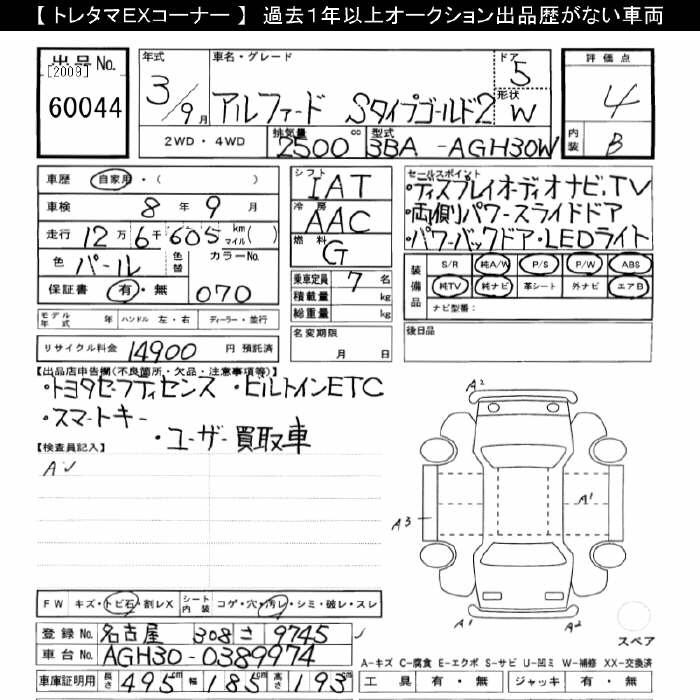 【 トレタマEXコーナー 】 過去1年以上オークション出品歴がない車両
出品 No. [2009] 60044
年式 3/9月
車名・グレード アルファード Sタイプゴールド2
ドア 5
形状 W
評価点 4
内装 B
2WD・4WD 排気量 2500 cc 型式 3BA -AGH30W
車歴 自家用・( )
車検 8年 9月
走行 12万 6千 605 km マイル( )
色 パール 色替 カラーNo. 070
保証書 有・無
モデル年式 年 ハンドル 左・右 ディーラー・並行
リサイクル料金 14900 円 預託済
シフト IAT
冷房 AAC
燃料 G
乗車定員 7 名
積載量 kg
総重量 kg
名変期限 月 日
セールスポイント
・ディスプレイオーディオナビ、TV
・両側パワースライドドア
・パワーバックドア・LEDライト
装備品 S/R 純A/W P/S P/W ABS
純TV 純ナビ 革シート 外ナビ エアB
ナビ型番:
後日品
【出品店申告欄(不良箇所・欠品・注意事項等)】
・トヨタセーフティセンス ・ビルトインETC
・スマートキー
・ユーザー買取車
【検査員記入】
A2
A1
A3
A1
A2
スペア
FW キズ・トビ石・割レX シート内装 コゲ・穴・汚レ・シミ・破レ・スレ
登録 No. 名古屋 308 さ 9745
車台 No. AGH30-0389974
車庫証明用 長さ 495cm 幅 185cm 高さ 193cm
A-キズ C-腐食 E-エクボ S-サビ U-凹ミ W-補修 XX-交換済
工具 有・無 ジャッキ 有・無